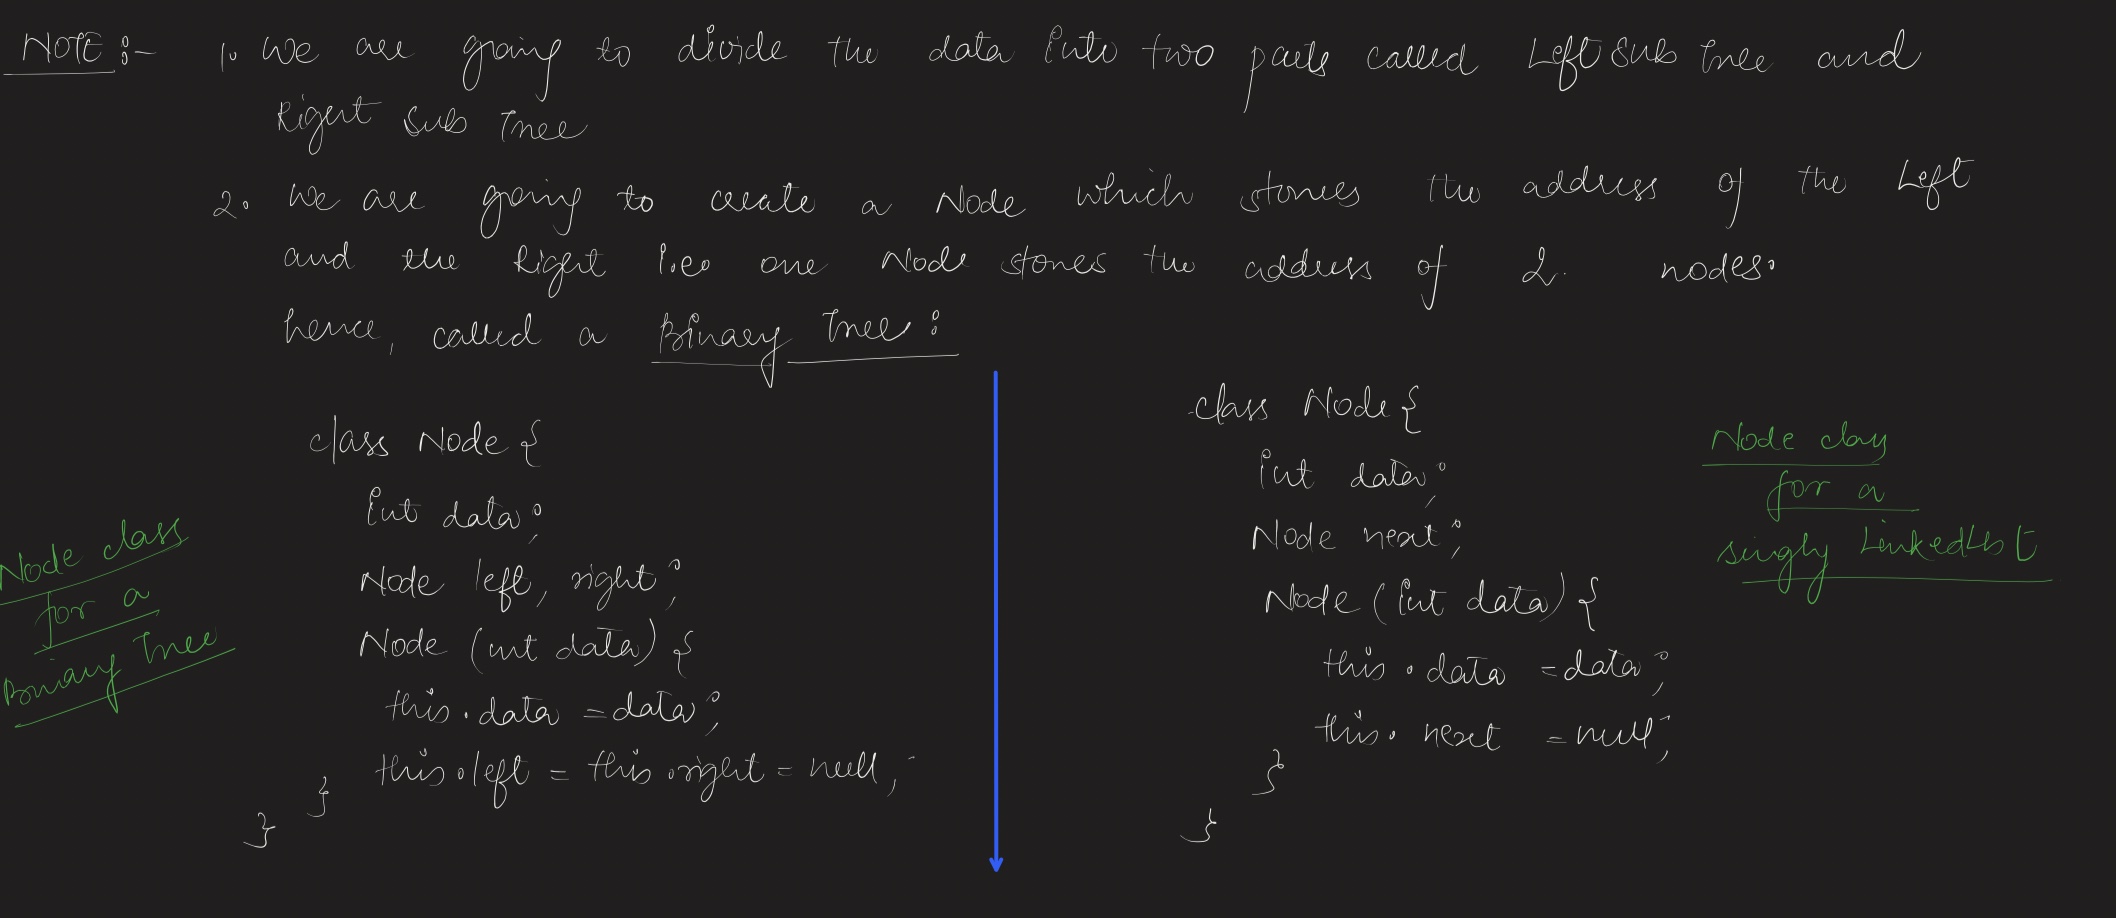 NOTE :- 1. We are going to divide the data into two parts called Left Sub Tree and
Right Sub Tree
2. We are going to create a Node which stores the address of the Left
and the Right i.e. one Node stores the address of 2 nodes.
hence, called a Binary Tree :
class Node {
int data;
Node left, right;
Node (int data) {
this.data = data;
this.left = this.right = null;
}
}
Node class
for a
Binary Tree
class Node {
int data;
Node next;
Node (int data) {
this.data = data;
this.next = null;
}
}
Node class
for a
singly LinkedList